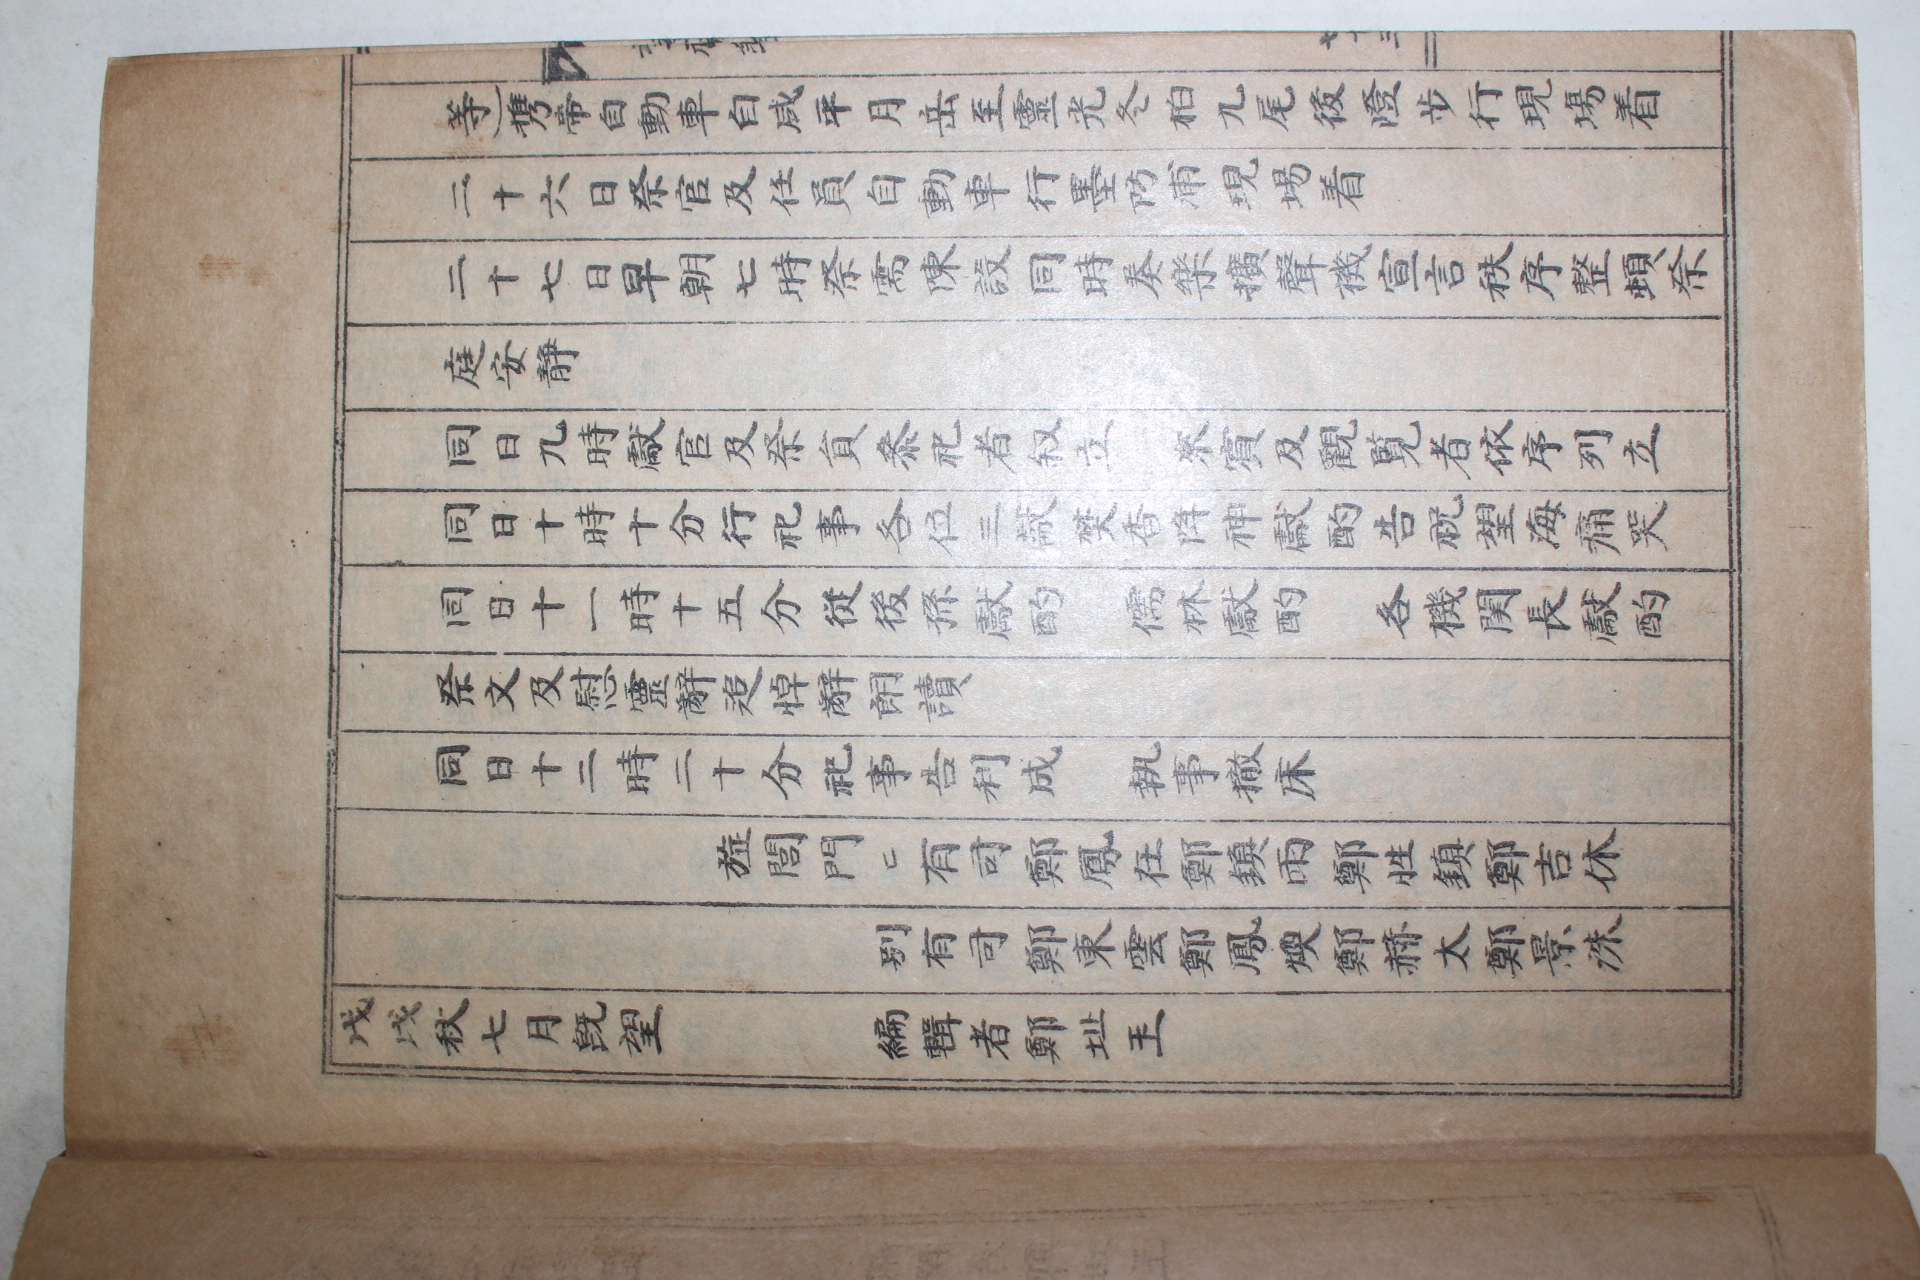 等)携帶自動車自咸平月岳至靈光冬柏九尾後澄步行現場着
二十六日祭官及任員自動車行墨防浦現場着
二十七日早朝七時祭需陳設同時奏樂擴聲機宣言秩序整頓祭
庭安靜
同日九時獻官及祭員參祀者叙立 來賓及觀覧者依序列立
同日十時十分行祀事各位三獻焚香降神獻酌告祝望海痛哭
同日十一時十五分從後孫獻酌 儒林獻酌 各機関長獻酌
祭文及慰靈辭追悼辭朗讀
同日十二時二十分祀事告利成 執事撤床
旌閭門二有司鄭鳳在鄭鎮雨鄭性鎮鄭吉休
別有司鄭東雲鄭鳳煥鄭赫太鄭景洙
戊戌秋七月旣望 編輯者鄭址玉